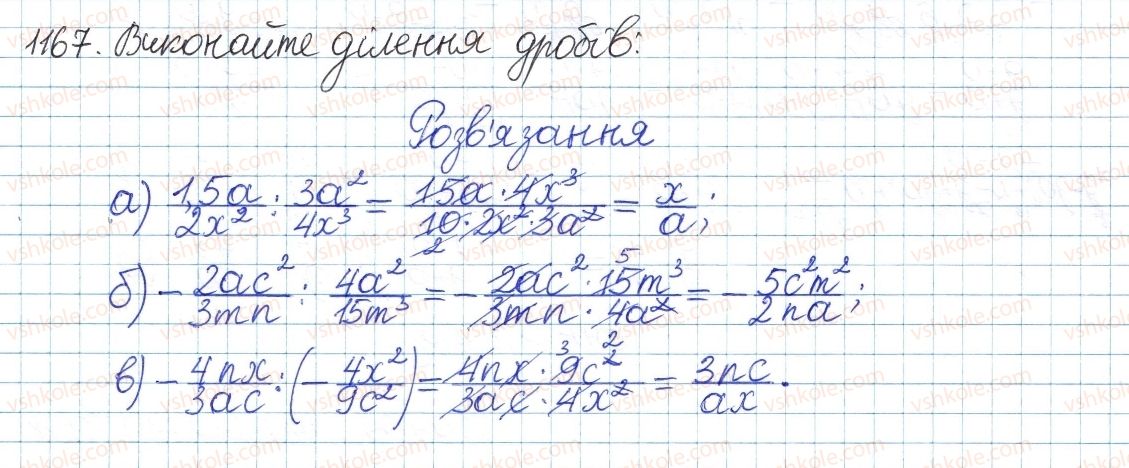 1167. Виконайте ділення дробів:
Розв'язання
а) 1,5a/2x² : 3a²/4x³ = 15a·4x³/10·2x²·3a² = x/a;
2
б) -2ac²/3mn : 4a²/15m³ = -2ac²·15m³/3mn·4a² = -5c²m²/2na;
5
в) -4nx/3ac : (-4x²/9c²) = 4nx·9c²/3ac·4x² = 3nc/ax.
3